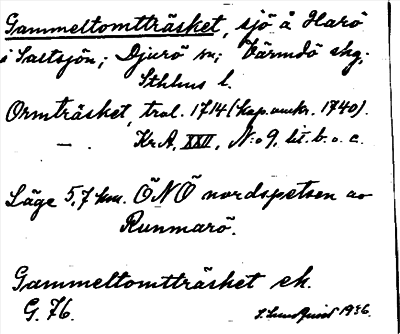 Gammeltomtträsket, sjö å Harö
i Saltsjön; Djurö sn; Värmdö skg;
Sthlms l.
Ormträsket, trol. 1714 (kap. omkr. 1740).
— . Kr.A, XXII, N:o 9, lit. b. o. c.
Läge 5,7 km. ÖNÖ nordspetsen av
Runmarö.
Gammeltomtträsket ek.
G. 76. 1936.